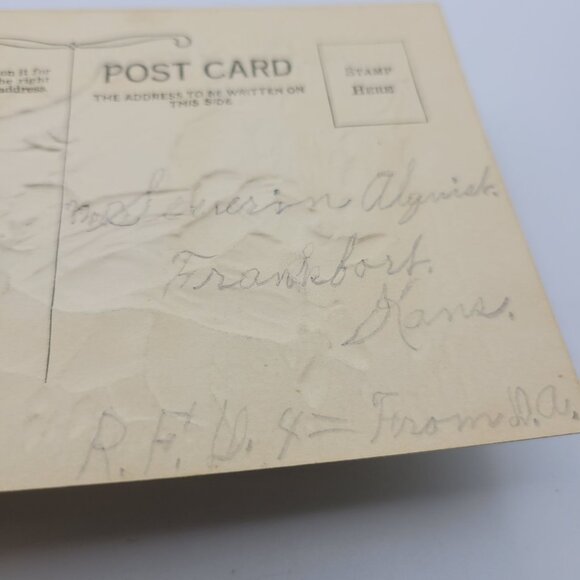 on it for
the right
address.
POST CARD
THE ADDRESS TO BE WRITTEN ON
THIS SIDE
STAMP
HERE
Severin Alquist.
Frankfort.
Kans.
R.F.D. 4 = From D.A.